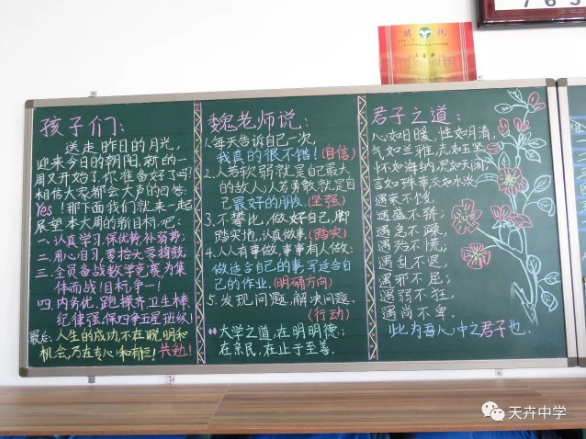 奖状
孩子们：
送走昨日的月光，
迎来今日的朝阳，新的一
周又开始了，你准备好了吗？
相信大家都会大声的回答：
Yes！那下面我们就来一起
展望本大周的新目标吧：
一、认真学习，保优势，补弱势；
二、用心自习，零抬头零擒贼
三、全员备战数学竞赛，为集
体而战！目标，争一！
四、内务优，跑操齐，卫生棒
纪律强，保四争五星班级！
最后：人生的成功，不在聪明和
机会，乃在专心和有恒！共勉！
魏老师说：
1.每天告诉自己一次，
我真的很不错！(自信)
2.人若软弱就是自己最大
的敌人；人若勇敢就是自己
最好的朋友。(坚强)
3.不攀比，做好自己，脚
踏实地，认真做事。(踏实)
4.人人有事做，事事有人做：
做适合自己的事，写适合自己
的作业。(明确方向)
5.发现问题，解决问题。
(行动)
**大学之道，在明明德；
在亲民，在止于至善。
君子之道：
心如日暖，性如月清，
气如兰雅，志如玉坚
怀如海纳，思如天阔，
言如珠翠，交如水淡
遇柔不侵，
遇盛不骄，
遇危不躁，
遇殆不慌，
遇乱不迟，
遇邪不屈，
遇弱不狂，
遇尚不卑。
此为吾心中之君子也。
天卉中学